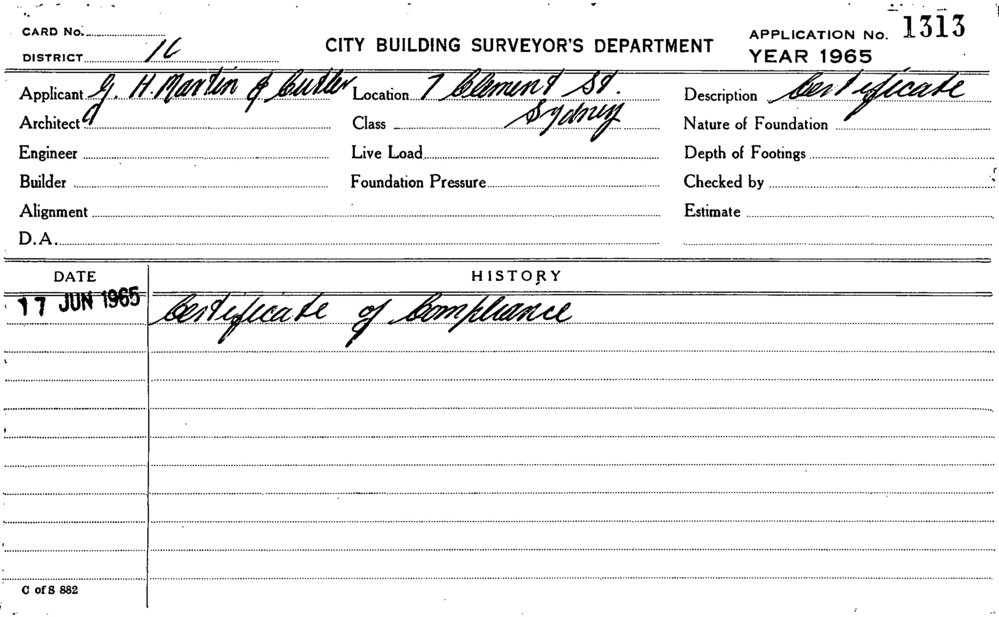 CARD No.
DISTRICT 1C
CITY BUILDING SURVEYOR'S DEPARTMENT
APPLICATION No. 1313
YEAR 1965
Applicant G. H. Martin & Cutler Location 7 Clement St. Description Certificate
Architect Class Sydney Nature of Foundation
Engineer Live Load Depth of Footings
Builder Foundation Pressure Checked by
Alignment Estimate
D.A.
DATE HISTORY
17 JUN 1965 Certificate of Compliance
C of S 882